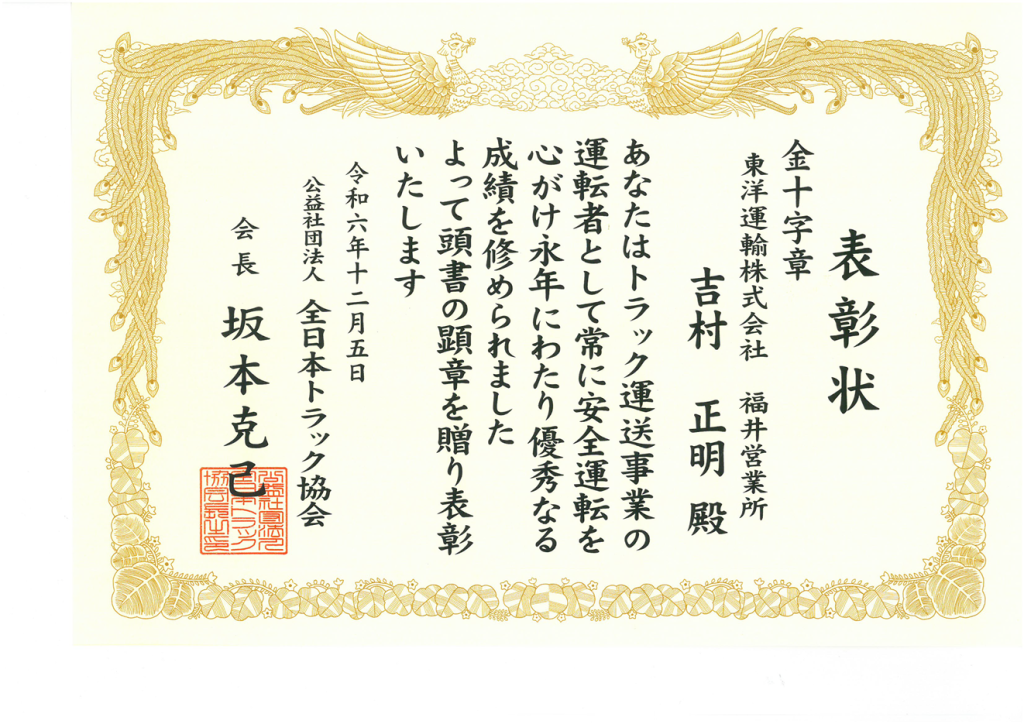 表彰状
金十字章
東洋運輸株式会社 福井営業所
吉村 正明 殿
あなたはトラック運送事業の
運転者として常に安全運転を
心がけ永年にわたり優秀なる
成績を修められました
よって頭書の顕章を贈り表彰
いたします
令和六年十二月五日
公益社団法人 全日本トラック協会
会長 坂本克己
公益社団法人
全日本トラック
協会長之印